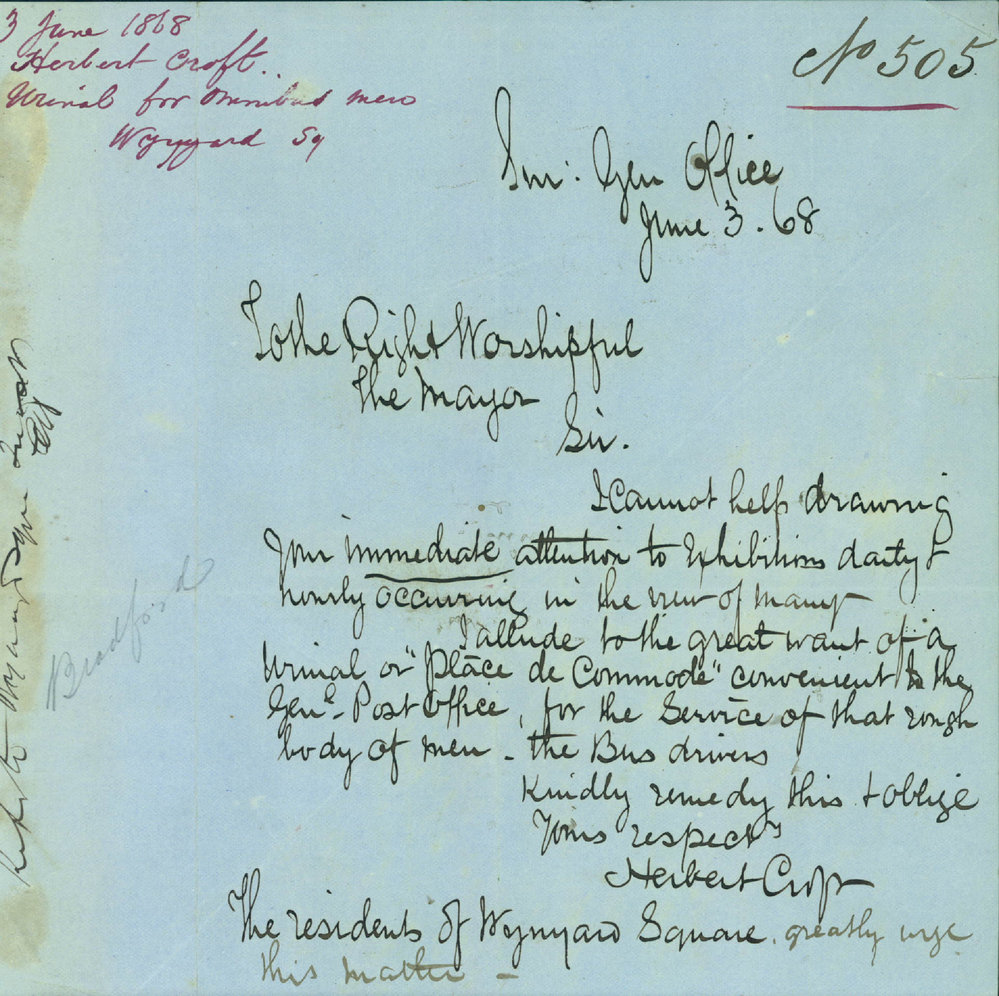 3 June 1868
Herbert Croft.
Urinal for Omnibus men
Wynyard Sq
No 505
Sur: Gen Office
June 3. 68
To the Right Worshipful
The Mayor
Sir.
I cannot help drawing
Your immediate attention to Exhibitions daily &
hourly occurring in the view of many
I allude to the great want of a
Urinal or "Place de Commode" convenient to the
Genl. Post Office, for the Service of that rough
body of men - the Bus drivers
Kindly remedy this & oblige
Yours respecty
Herbert Croft
The residents of Wynyard Square greatly urge
this matter -
Bradford
Wynyard Square